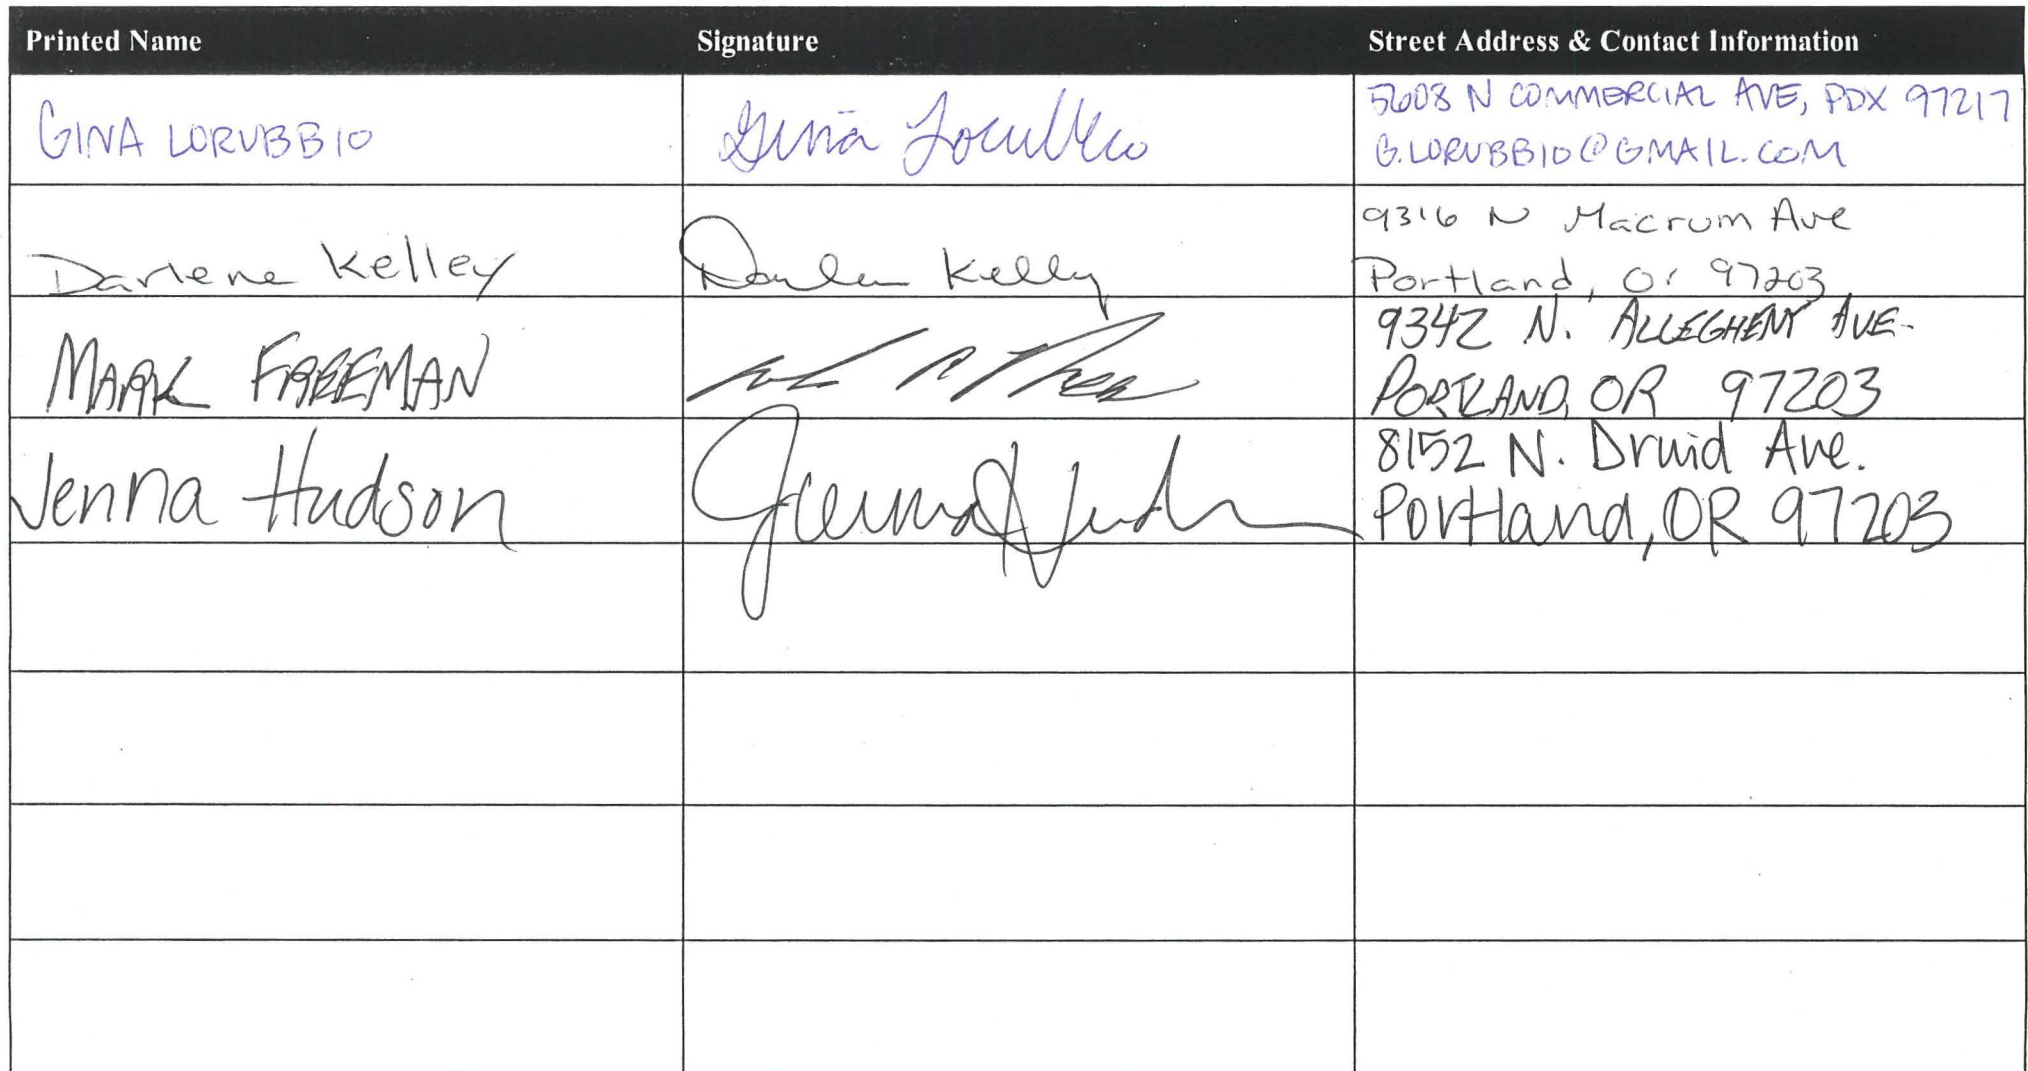 Printed Name Signature Street Address & Contact Information
GINA LORUBBIO Gina Lorubbio 5608 N COMMERCIAL AVE, PDX 97217
G.LORUBBIO@GMAIL.COM
Darlene Kelley Darlene Kelley 9316 N Macrum Ave
Portland, Or 97203
MARK FREEMAN 9342 N. ALLEGHENY AVE.
PORTLAND, OR 97203
Jenna Hudson Jenna Hud 8152 N. Druid Ave.
Portland, OR 97203